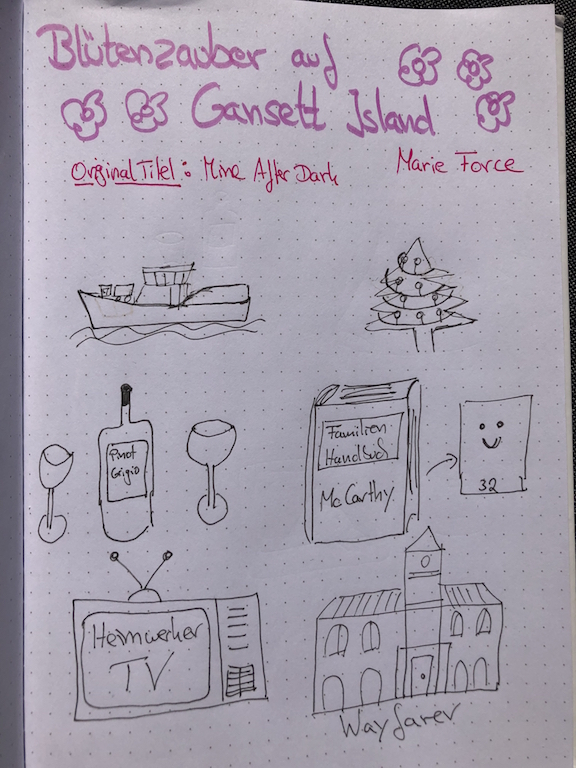 Blütenzauber auf
Gansett Island
Original Titel: Mine After Dark
Marie Force
Pinot
Grigio
Familien
Handbuch
McCarthy
32
Heimwerker
TV
Wayfarer